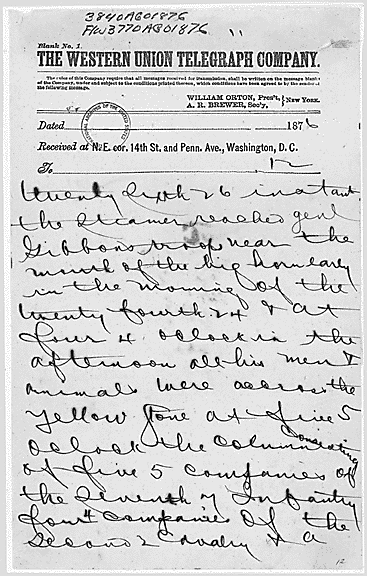 3840AGO1876
AW3770AGO1876
Blank No. 1.
THE WESTERN UNION TELEGRAPH COMPANY.
The rules of this Company require that all messages received for transmission, shall be written on the message blanks
of the Company, under and subject to the conditions printed thereon, which conditions have been agreed to by the sender of
the following message.
WILLIAM ORTON, Pres't,
A. R. BREWER, Sec'y,
} New York.
Dated 1876
Received at N.E. cor. 14th St. and Penn. Ave., Washington, D. C.
To
twenty sixth 26 instant
the steamer reached genl
Gibbons troop near the
mouth of the big horn early
in the morning of the
twenty fourth 24 & at
four 4 oclock in the
afternoon all his men &
animals were accross the
Yellow Stone at five 5
oclock the column Consisting
of five 5 companies of
the Seventh 7 Infantry
four 4 companies of the
Second 2 Cavalry & a
12